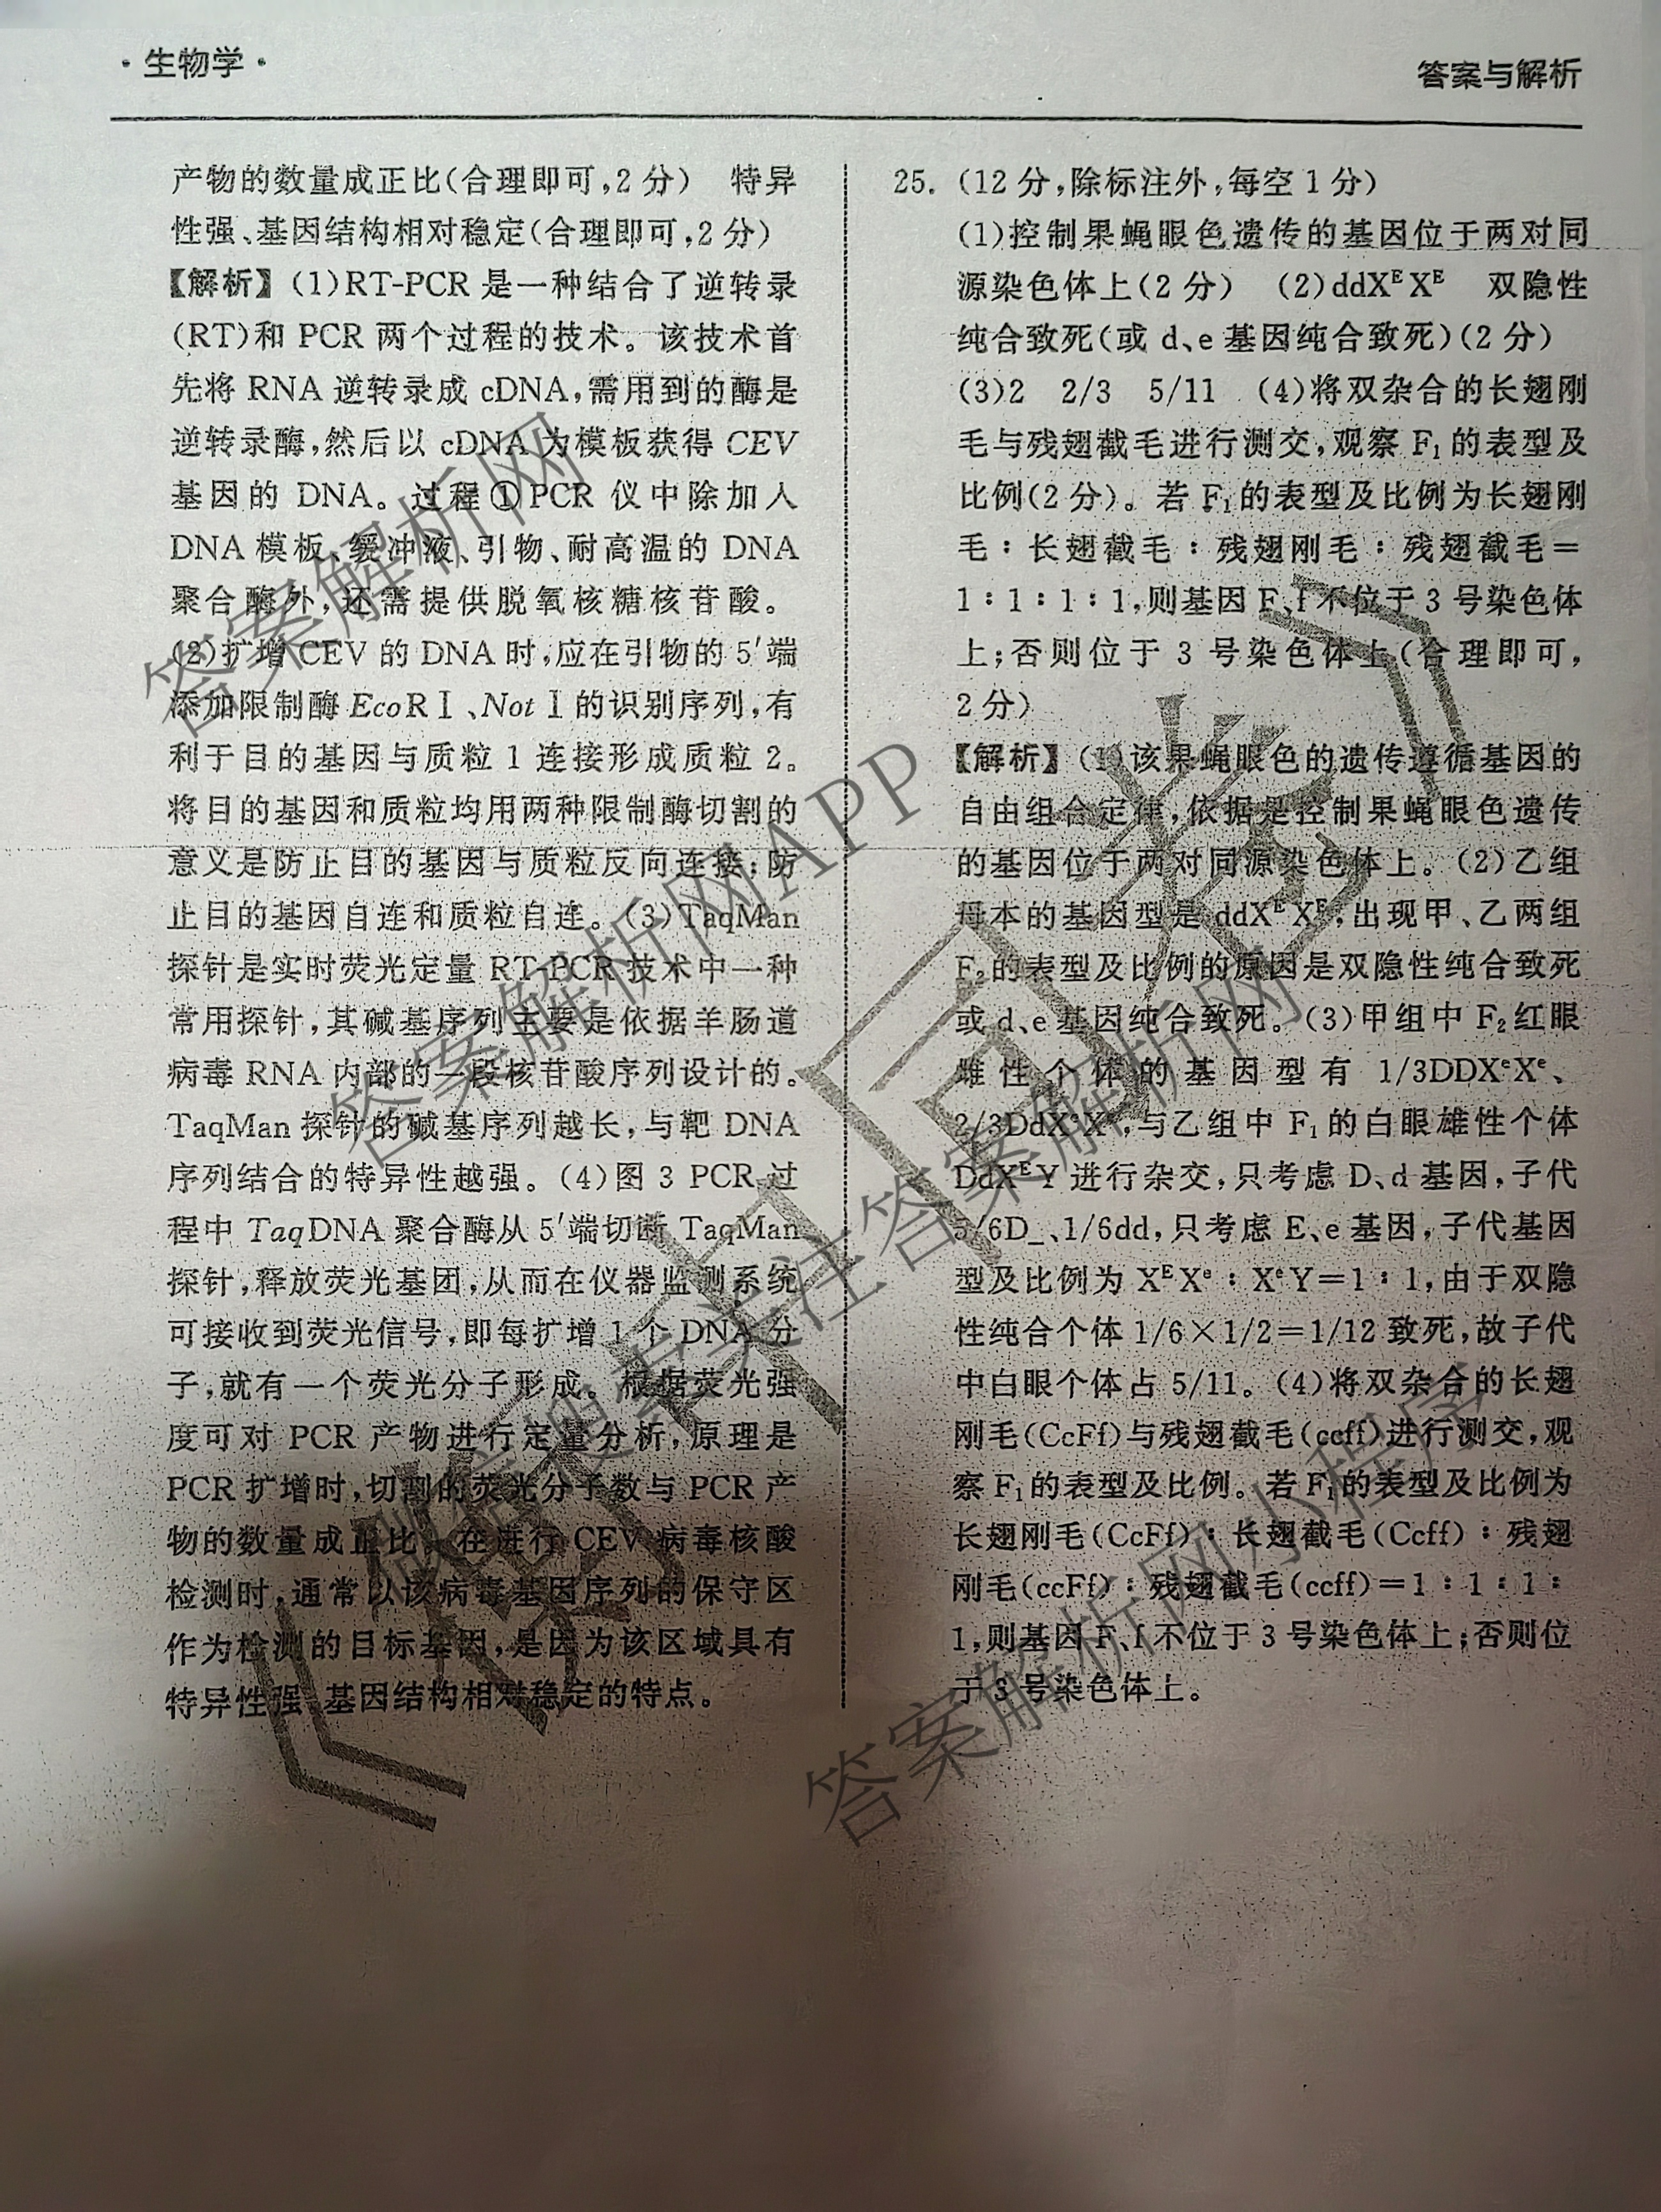 ·生物学·
答案与解析
产物的数量成正比(合理即可,2分) 特异
性强、基因结构相对稳定(合理即可,2分)
【解析】(1)RT-PCR是一种结合了逆转录
(RT)和PCR两个过程的技术。该技术首
先将RNA逆转录成cDNA,需用到的酶是
逆转录酶,然后以cDNA为模板获得CEV
基因的DNA。过程①PCR仪中除加入
DNA模板、缓冲液、引物、耐高温的DNA
聚合酶外,还需提供脱氧核糖核苷酸。
(2)扩增CEV的DNA时,应在引物的5′端
添加限制酶EcoRⅠ、NotⅠ的识别序列,有
利于目的基因与质粒1连接形成质粒2。
将目的基因和质粒均用两种限制酶切割的
意义是防止目的基因与质粒反向连接;防
止目的基因自连和质粒自连。(3)TaqMan
探针是实时荧光定量RT-PCR技术中一种
常用探针,其碱基序列主要是依据羊肠道
病毒RNA内部的一段核苷酸序列设计的。
TaqMan探针的碱基序列越长,与靶DNA
序列结合的特异性越强。(4)图3 PCR过
程中TaqDNA聚合酶从5′端切断TaqMan
探针,释放荧光基团,从而在仪器监测系统
可接收到荧光信号,即每扩增1个DNA分
子,就有一个荧光分子形成。根据荧光强
度可对PCR产物进行定量分析,原理是
PCR扩增时,切割的荧光分子数与PCR产
物的数量成正比。在进行CEV病毒核酸
检测时,通常以该病毒基因序列的保守区
作为检测的目标基因,是因为该区域具有
特异性强、基因结构相对稳定的特点。
25.(12分,除标注外,每空1分)
(1)控制果蝇眼色遗传的基因位于两对同
源染色体上(2分) (2)ddXᴱXᴱ 双隐性
纯合致死(或d、e基因纯合致死)(2分)
(3)2 2/3 5/11 (4)将双杂合的长翅刚
毛与残翅截毛进行测交,观察F₁的表型及
比例(2分)。若F₁的表型及比例为长翅刚
毛∶长翅截毛∶残翅刚毛∶残翅截毛=
1∶1∶1∶1,则基因F、f不位于3号染色体
上;否则位于3号染色体上(合理即可,
2分)
【解析】(1)该果蝇眼色的遗传遵循基因的
自由组合定律,依据是控制果蝇眼色遗传
的基因位于两对同源染色体上。(2)乙组
母本的基因型是ddXᴱXᴱ,出现甲、乙两组
F₂的表型及比例的原因是双隐性纯合致死
或d、e基因纯合致死。(3)甲组中F₂红眼
雌性个体的基因型有1/3DDXᵉXᵉ、
2/3DdXᵉXᵉ,与乙组中F₁的白眼雄性个体
DdXᴱY进行杂交,只考虑D、d基因,子代
5/6D_、1/6dd,只考虑E、e基因,子代基因
型及比例为XᴱXᵉ∶XᵉY=1∶1,由于双隐
性纯合个体1/6×1/2=1/12致死,故子代
中白眼个体占5/11。(4)将双杂合的长翅
刚毛(CcFf)与残翅截毛(ccff)进行测交,观
察F₁的表型及比例。若F₁的表型及比例为
长翅刚毛(CcFf)∶长翅截毛(Ccff)∶残翅
刚毛(ccFf)∶残翅截毛(ccff)=1∶1∶1∶
1,则基因F、f不位于3号染色体上;否则位
于3号染色体上。
答案解析网
答案解析网APP
微信搜索关注答案解析网
答案解析网小程序